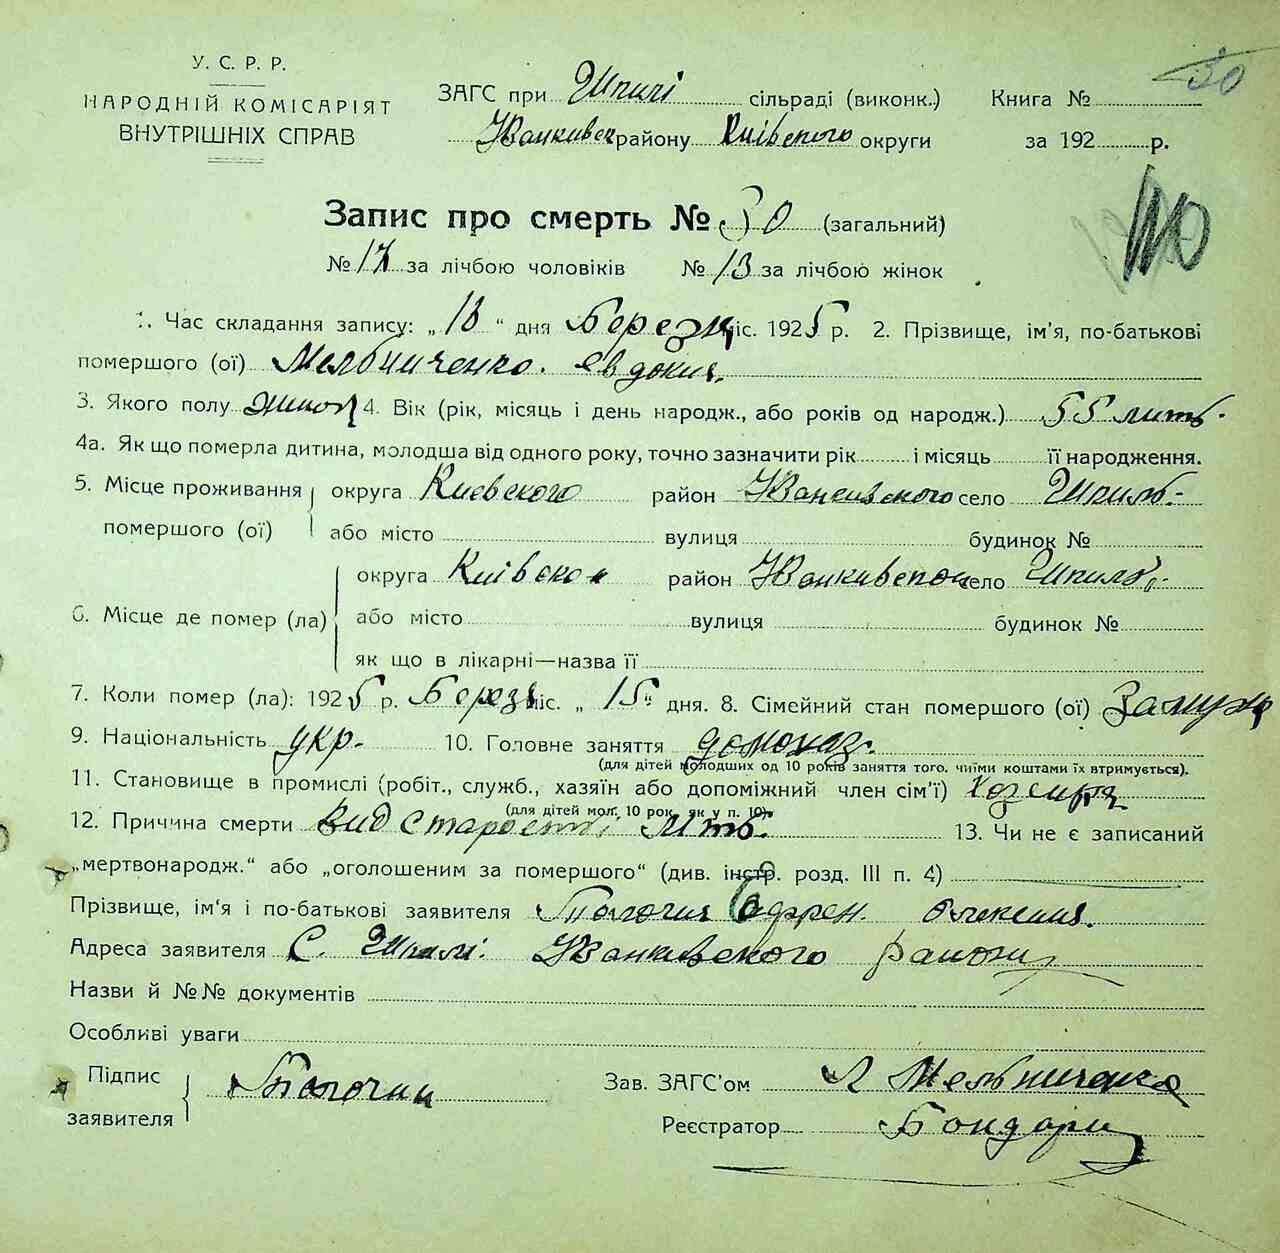 У. С. Р. Р.
НАРОДНІЙ КОМІСАРІЯТ
ВНУТРІШНІХ СПРАВ
ЗАГС при Шпилі сільраді (виконк.)
Іванкивск району Київського округи
Книга № 30
за 192 р.
Запис про смерть № 30 (загальний)
№ 17 за лічбою чоловіків № 13 за лічбою жінок
1. Час складання запису: „ 18 “ дня Березня міс. 1925 р. 2. Прізвище, ім’я, по-батькові
помершого (ої) Мельниченко. Евдокия.
3. Якого полу 4. Вік (рік, місяць і день народж., або років од народж.) 55 лить.
4а. Як що померла дитина, молодша від одного року, точно зазначити рік і місяць її народження.
5. Місце проживання округа Киевского район Иванкивского село Шпиль
помершого (ої) або місто вулиця будинок №
округа Київско район Иванкивского село Шпиль
6. Місце де помер (ла) або місто вулиця будинок №
як що в лікарні—назва її
7. Коли помер (ла): 1925 р. Березня міс. „ 15 “ дня. 8. Сімейний стан помершого (ої) Замужн
9. Національність укр. 10. Головне заняття домохаз.
(для дітей молодших од 10 років заняття того, чиїми коштами їх втримується).
11. Становище в промислі (робіт., служб., хазяїн або допоміжний член сім’ї)
(для дітей мол. 10 рок. як у п. 10).
12. Причина смерти вид старости лить. 13. Чи не є записаний
„мертвонародж.“ або „оголошеним за помершого“ (див. інстр. розд. III п. 4)
Прізвище, ім‘я і по-батькові заявителя
Адреса заявителя С. Шпилі Иванкивского району
Назви й №№ документів
Особливі уваги
Підпис
заявителя
Зав. ЗАГС’ом Л Мельниченко
Реєстратор Бондарь